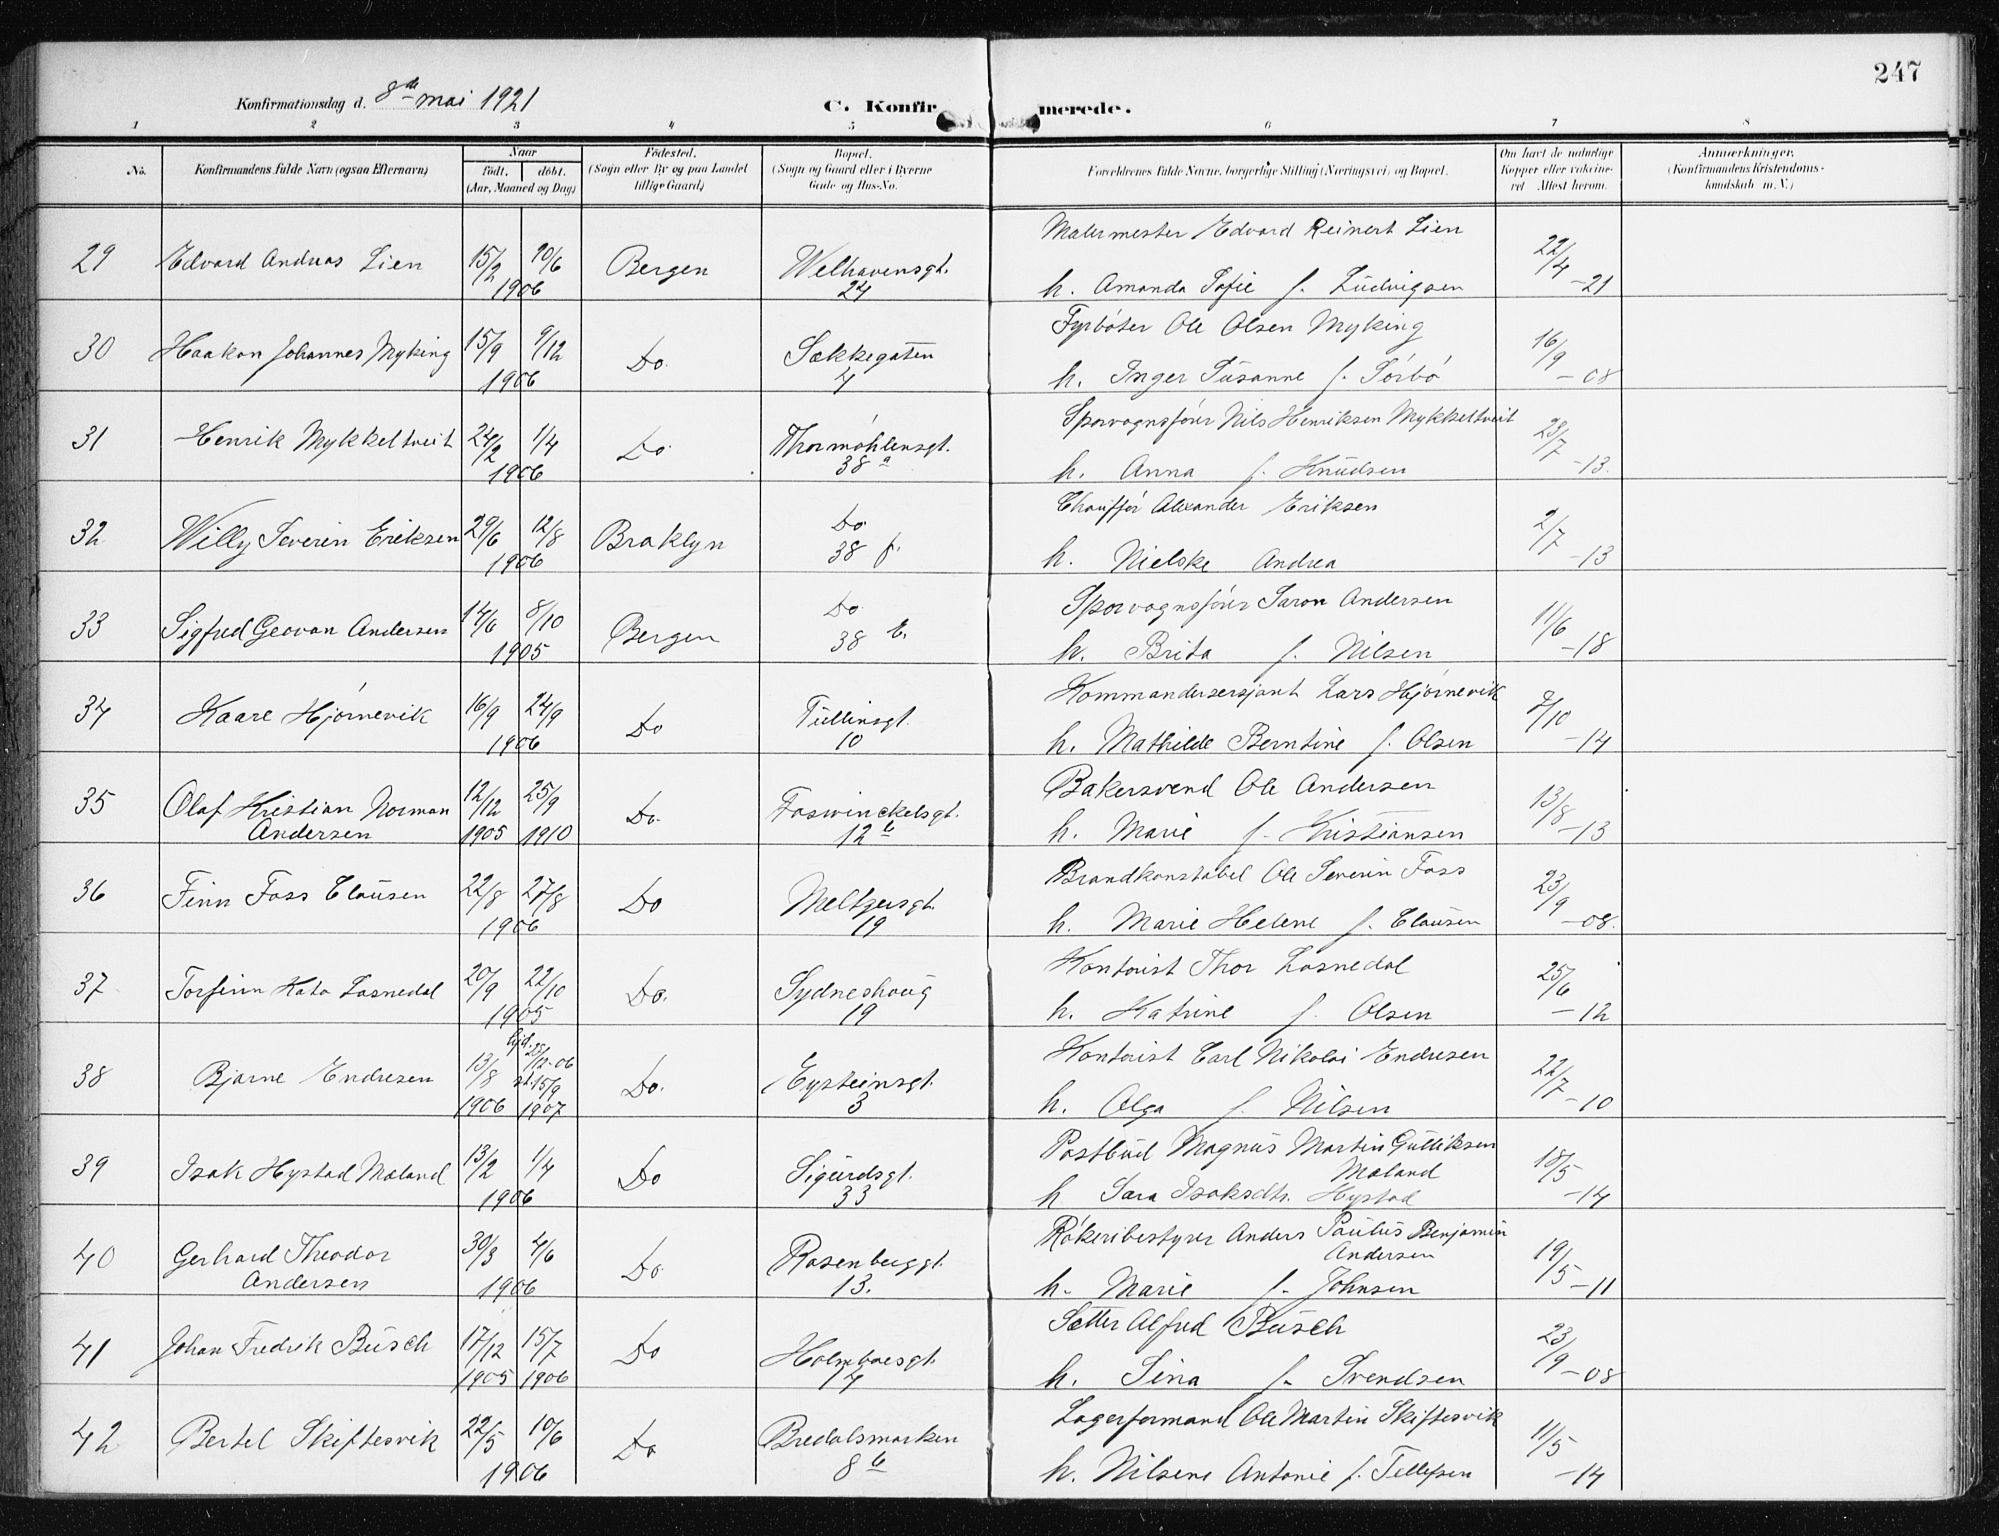 247
Konfirmationsdag d. 8de mai 1921
C. Konfirmerede.
1 2 3 4 5 6 7 8
No.
Konfirmandens fulde Navn (ogsaa Efternavn)
Naar
født. døbt.
(Aar, Maaned og Dag)
Fødested.
(Sogn eller By og paa Landet
tillige Gaard)
Bopæl.
(Sogn og Gaard eller i Byerne
Gade og Hus-No.
Forældrenes fulde Navne, borgerlige Stilling (Næringsvei) og Bopæl.
Om havt de naturlige
Kopper eller vaccine-
ret Attest herom.
Anmærkninger.
(Konfirmandens Kristendoms-
kundskab m. V.)
29 Edvard Andreas Lien 15/2 10/6 1906 Bergen Welhavensgt. 24
Malermester Edvard Reinert Lien
h. Amanda Sofie f. Ludvigsen 22/4 -21
30 Haakon Johannes Myking 15/9 9/12 1906 Do. Sækkegaten 4
Fyrbøter Ole Olsen Myking
h. Inger Susanne f. Sørbø 16/9 -08
31 Henrik Mykkeltveit 24/2 1/4 1906 Do Thormøhlensgt. 38 a
Sporvognsfører Nils Henriksen Mykkeltveit
h. Anna f. Knudsen 23/7 -13.
32 Willy Severin Eriksen 29/6 12/8 1906 Braklyn Do 38 f.
Chauffør Alexander Eriksen
h. Nielske Andrea 2/7 -13
33 Sigfred Geovan Andersen 14/6 8/10 1905 Bergen Do 38 E.
Sporvognsfører Saron Andersen
h. Brita f. Nilsen 11/6 -18
34 Kaare Hjørnevik 16/9 24/9 1906 Do Tullinsgt. 10
Kommandersersjant Lars Hjørnevik
h. Mathilde Berntine f. Olsen 7/10 -14
35 Olaf Kristian Norman
Andersen 12/12 1905 25/9 1910 Do. Foswinckelsgt. 12 b
Bakersvend Ole Andersen
h. Marie f. Kristiansen 13/8 -13
36 Finn Foss Clausen 22/8 27/8 1906 Do Meltzersgt. 19
Brandkonstabel Ole Severin Foss
h. Marie Helene f. Clausen 23/9 -08.
37 Torfinn Kato Losnedal 20/9 22/10 1905 Do. Sydneshoug 19
Kontorist Thor Losnedal
h. Katrine f. Olsen 25/6 -12
38 Bjarne Endresen 13/8 1906 hjd. 25/12-06 st. 15/9 1907 Do. Eysteinsgt. 3
Kontorist Carl Nikolai Endresen
h. Olga f. Nilsen 22/7 -10
39 Isak Hystad Moland 13/2 1/4 1906 Do Sigurdsgt. 33
Postbud Magnus Martin Gulliksen
Moland
h Sara Isaksdtr. Hystad 18/5 -14
40 Gerhard Theodor
Andersen 30/3 4/6 1906 Do Rosenberggt. 13.
Røkeribestyrer Anders Paulus Benjamin
Andersen
h. Marie f. Johnsen 19/5 -11
41 Johan Fredrik Busch 17/12 1905 15/7 1906 Do Holmboesgt. 14
Sætter Alfred Busch
h. Sina f. Svendsen 23/9 -08
42 Bertel Skiftesvik 22/5 10/6 1906 Do Bredalsmarken 8 b
Lagerformand Ole Martin Skiftesvik
h. Nilsene Antonie f. Tellefsen 11/5 -14